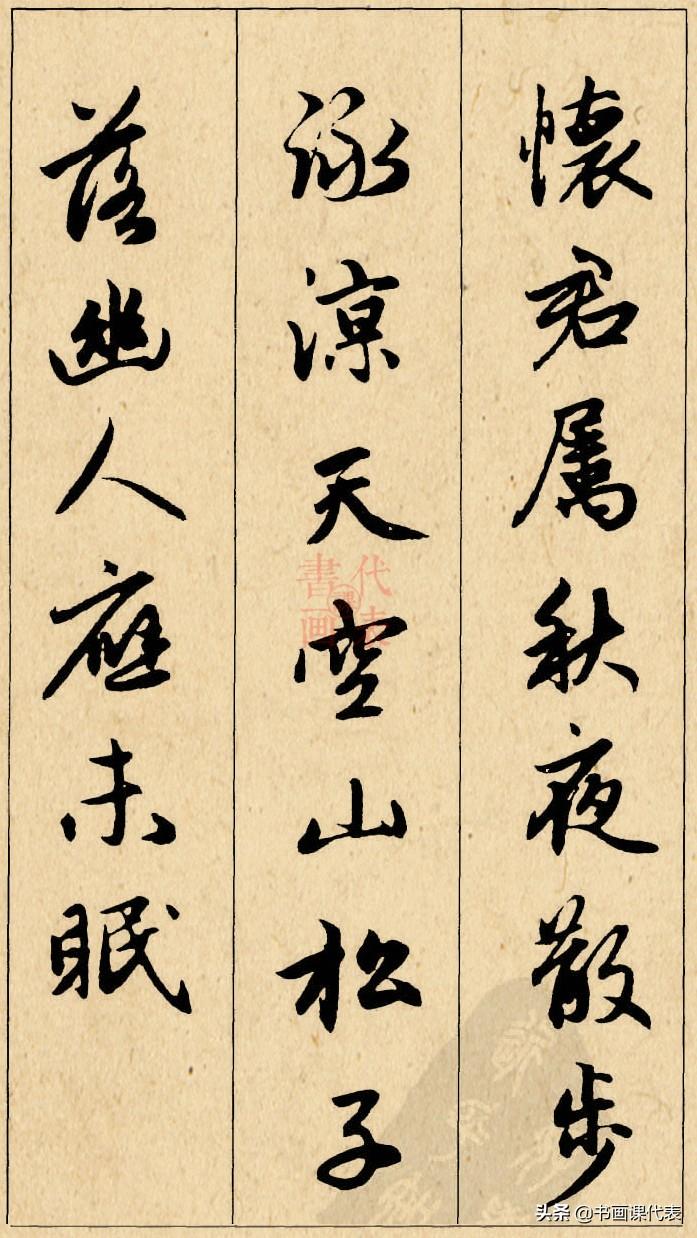 懷君属秋夜散步
詠涼天空山松子
落幽人應未眠
書画
代表
头条 @书画课代表